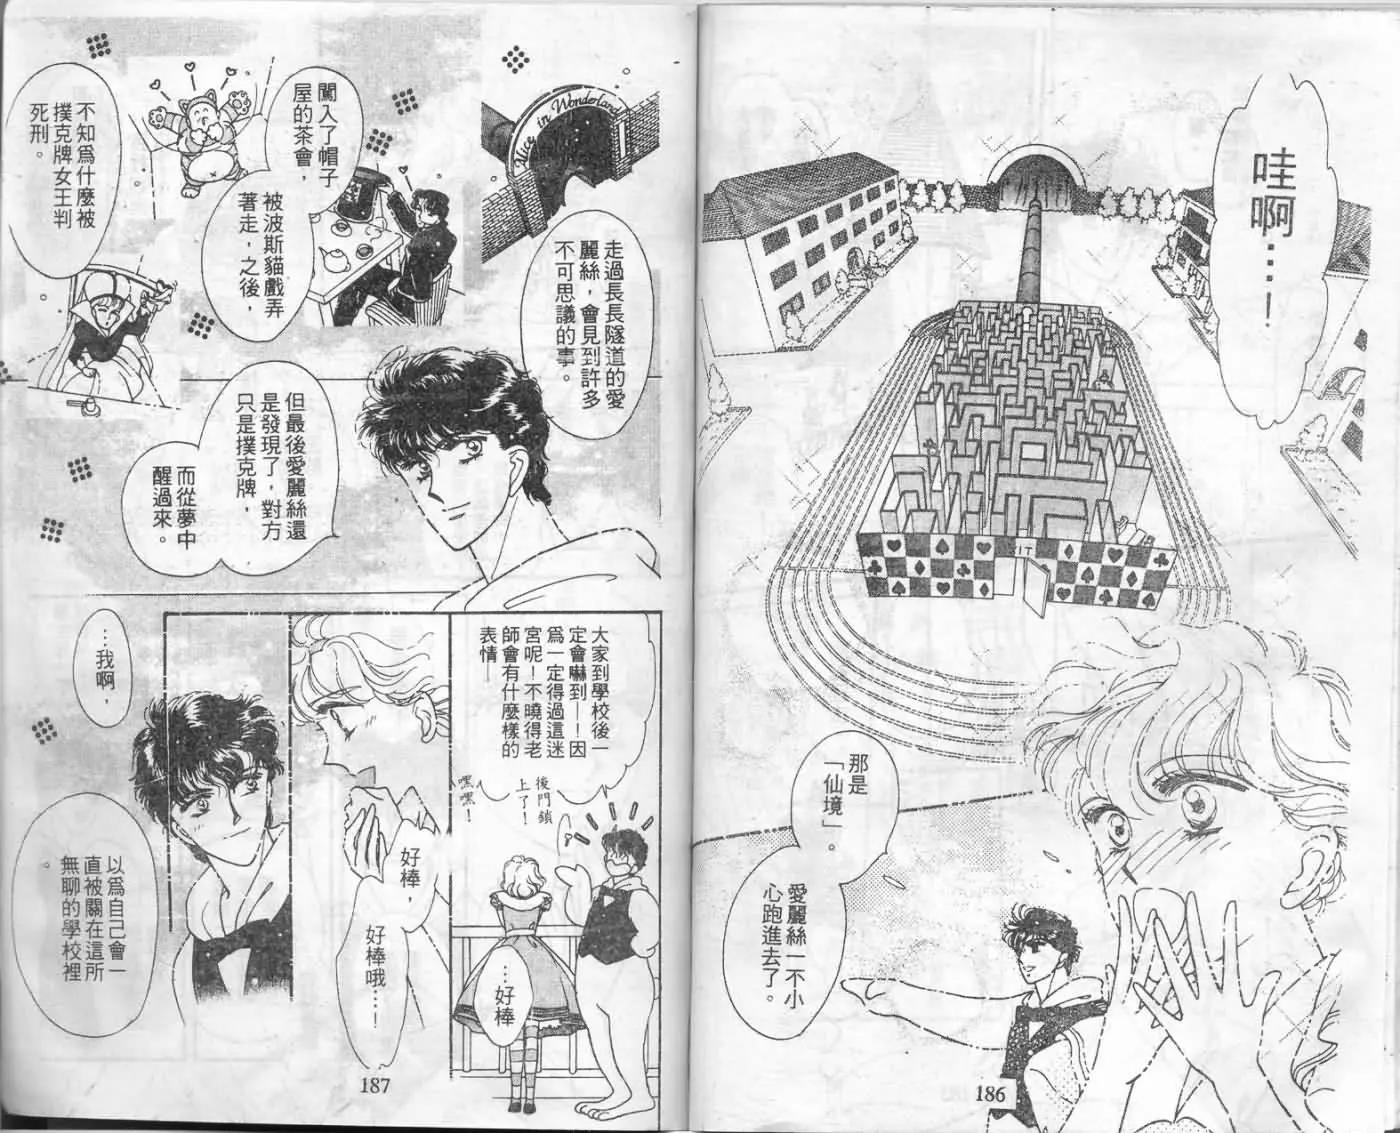 哇啊……！
EXIT
那是
「仙境」。
愛麗絲一不小
心跑進去了。
186
Alice in Wonderland
走過長長隧道的愛
麗絲，會見到許多
不可思議的事。
闖入了帽子
屋的茶會，
被波斯貓戲弄
著走，之後，
不知為什麼被
撲克牌女王判
死刑。
但最後愛麗絲還
是發現了，對方
只是撲克牌，
而從夢中
醒過來。
大家到學校後一
定會嚇到——！因
為一定得過這迷
宮呢！不曉得老
師會有什麼樣的
表情—
後門鎖
上了！
嘿
嘿！
…好棒
好棒，
好棒哦…！
…我啊，
以為自己會一
直被關在這所
無聊的學校裡
。
187